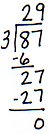 29
3)87
-6
27
-27
0